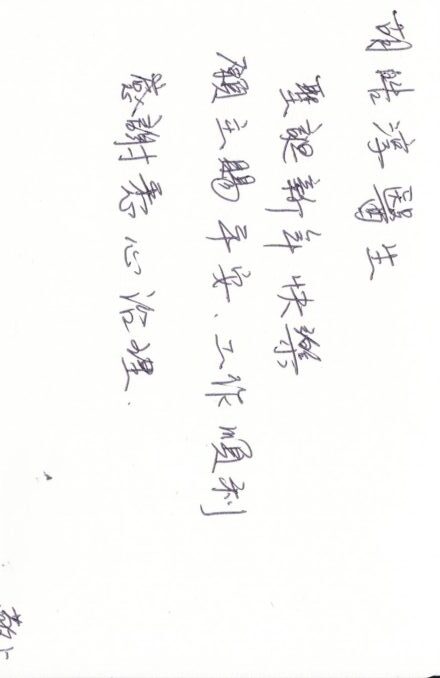 胡志淳醫生
聖誕新年快樂
願主賜平安、工作順利
感謝悉心治理.
敬上